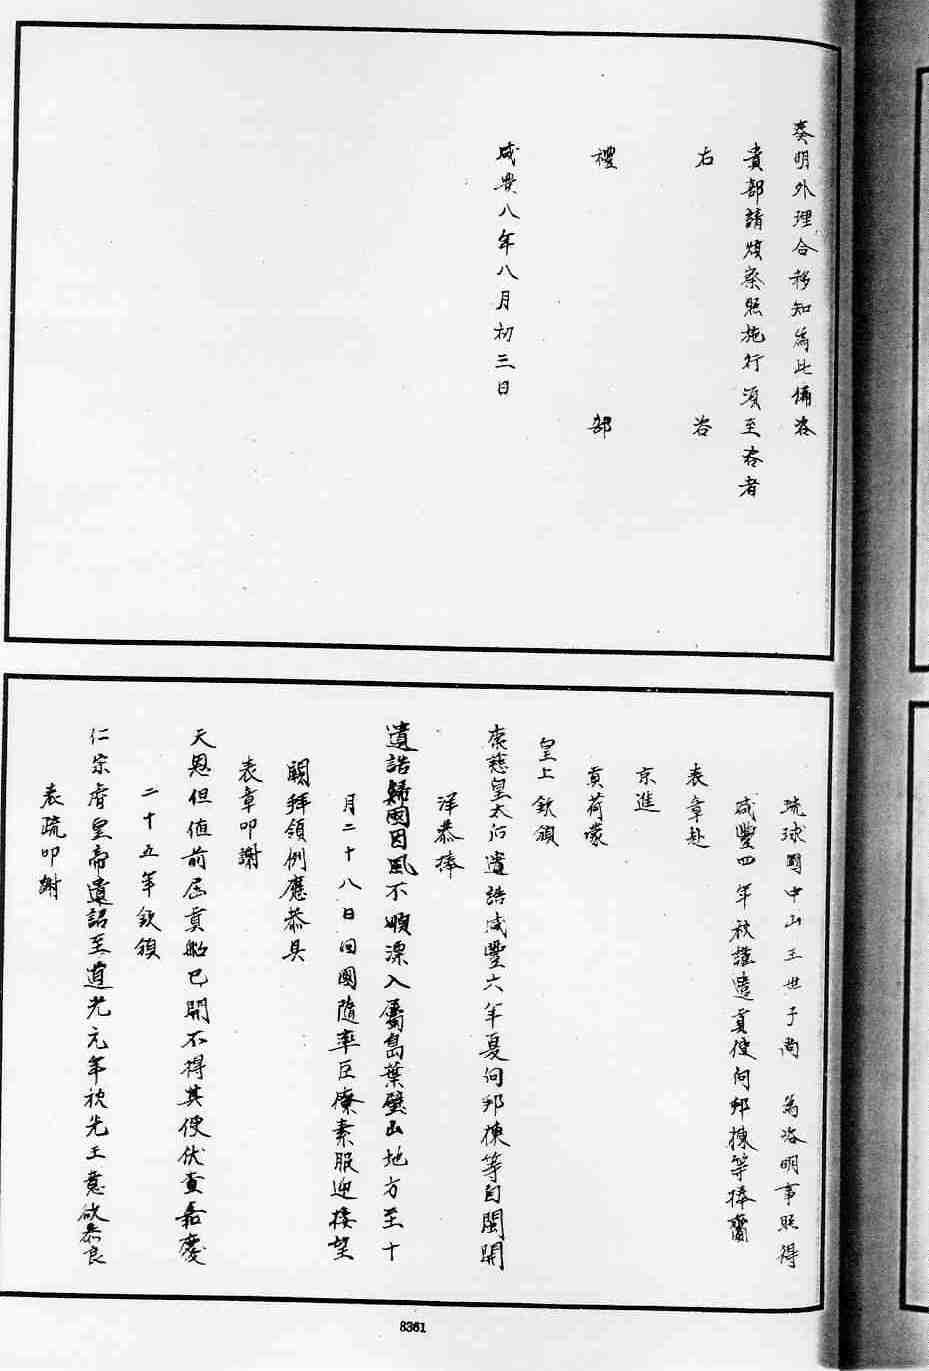 奏明外理合移知為此備咨
貴部請煩察照施行須至咨者
右咨
禮部
咸豐八年八月初三日
琉球國中山王世子尚 為咨明事照得
咸豐四年秋謹遣貢使向邦棟等捧齎
表章赴
京進
貢荷蒙
皇上欽頒
康慈皇太后遺誥咸豐六年夏向邦棟等自閩開
洋恭捧
遺誥歸國因風不順漂入屬島葉壁山地方至十
月二十八日回國隨率臣僚素服迎接望
闕拜領例應恭具
表章叩謝
天恩但值前屆貢船已開不得其便伏查嘉慶
二十五年欽頒
仁宗睿皇帝遺詔至道光元年秋先王意欲恭良
表疏叩謝
8361